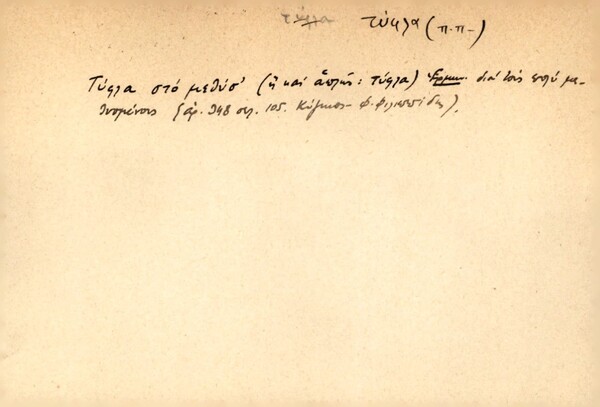 τύφλα τύφλα (π.π-)
Τύφλα στό μεθύσ' (ἤ καί ἁπλῶς: τύφλα) Ἑρμην. διά τούς πολύ με-
θυσμένους (ἀρ. 948 σελ. 105. Κύζικος - Φ. Φιλιππίδης).